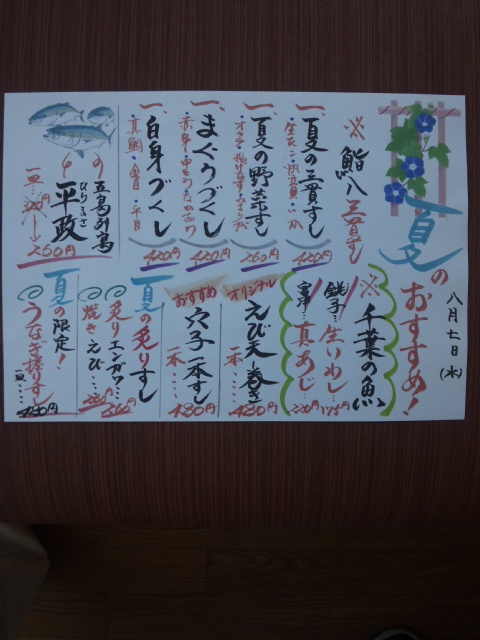 夏のおすすめ!
八月七日(木)
※鮨八三貫すし
一、夏の三貫すし
420円
一、夏の野菜すし
260円
一、まぐろづくし
420円
一、白身づくし
・真鯛・・平目
420円
五島列島
ひらまさ
平政
一貫…250円
※千葉の魚
銚子 生いわし…175円
富津 真あじ…230円
オリジナル
えび天巻き
一本…480円
おすすめ
穴子一本すし
一本…480円
夏の炙りすし
炙りエンガワ…360円
焼きえび…260円
夏の限定!
うなぎ捧りすし
一貫…480円